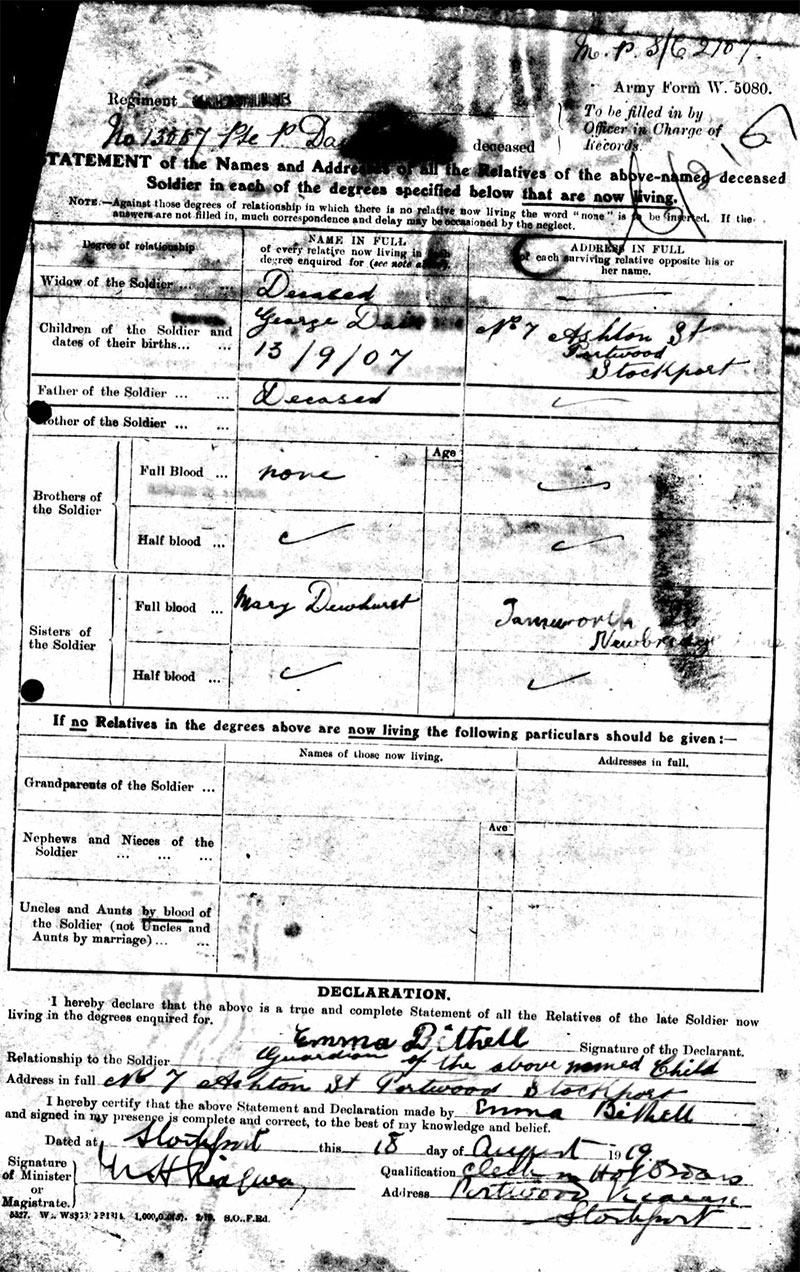 M. P. S/C 2107.
Army Form W. 5080.
Regiment
To be filled in by
Officer in Charge of
Records.
No 13057 Pte P. Da deceased
STATEMENT of the Names and Addresses of all the Relatives of the above-named deceased
Soldier in each of the degrees specified below that are now living.
NOTE.—Against those degrees of relationship in which there is no relative now living the word "none" is to be inserted. If the
answers are not filled in, much correspondence and delay may be occasioned by the neglect.
Degree of relationship
NAME IN FULL
of every relative now living in each
degree enquired for (see note above)
ADDRESS IN FULL
of each surviving relative opposite his or
her name.
Widow of the Soldier ... ...
Deceased
Children of the Soldier and
dates of their births... ...
George Da
13/9/07
No 7 Ashton St
Portwood
Stockport
Father of the Soldier ... ...
Deceased
Mother of the Soldier ... ...
Age
Brothers of
the Soldier
Full Blood ...
none
Half blood ...
Sisters of
the Soldier
Full blood ...
Mary Dewhurst
Tamworth
Newbridge
Half blood ...
If no Relatives in the degrees above are now living the following particulars should be given:—
Names of those now living.
Addresses in full.
Grandparents of the Soldier ...
Nephews and Nieces of the
Soldier ... ... ...
Age
Uncles and Aunts by blood of
the Soldier (not Uncles and
Aunts by marriage)... ...
DECLARATION.
I hereby declare that the above is a true and complete Statement of all the Relatives of the late Soldier now
living in the degrees enquired for.
Emma Bithell Signature of the Declarant.
Relationship to the Soldier Guardian of the above named Child
Address in full No 7 Ashton St Portwood Stockport
I hereby certify that the above Statement and Declaration made by Emma Bithell
and signed in my presence is complete and correct, to the best of my knowledge and belief.
Dated at Stockport this 18 day of August 1919
Signature
of Minister
or
Magistrate.
Qualification Clerk in Holy Orders
Address Portwood Vicarage
Stockport
1,000,0 2/19. S.O., F.Rd.